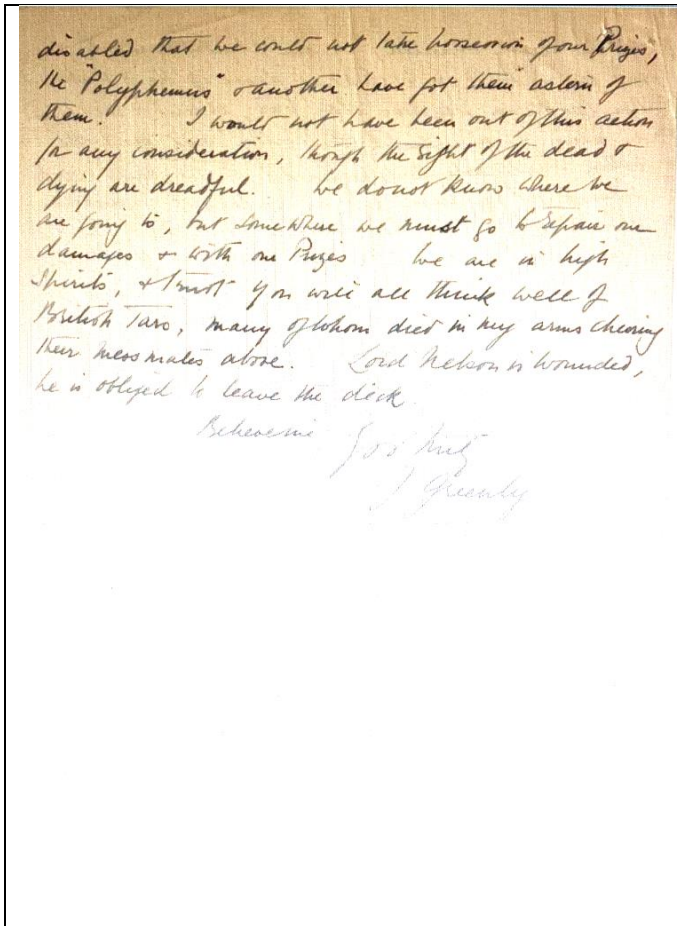 disabled that we could not take possession of our Prizes,
the "Polyphemus" & another have got them astern of
them. I would not have been out of this action
for any consideration, though the sight of the dead &
dying are dreadful. We do not know where we
are going to, but somewhere we must go to repair our
damages & with our Prizes We are in high
Spirits, & trust you will all think well of
British Tars, many of whom died in my arms cheering
their messmates above. Lord Nelson is wounded,
he is obliged to leave the deck
Believe me
J Greenly